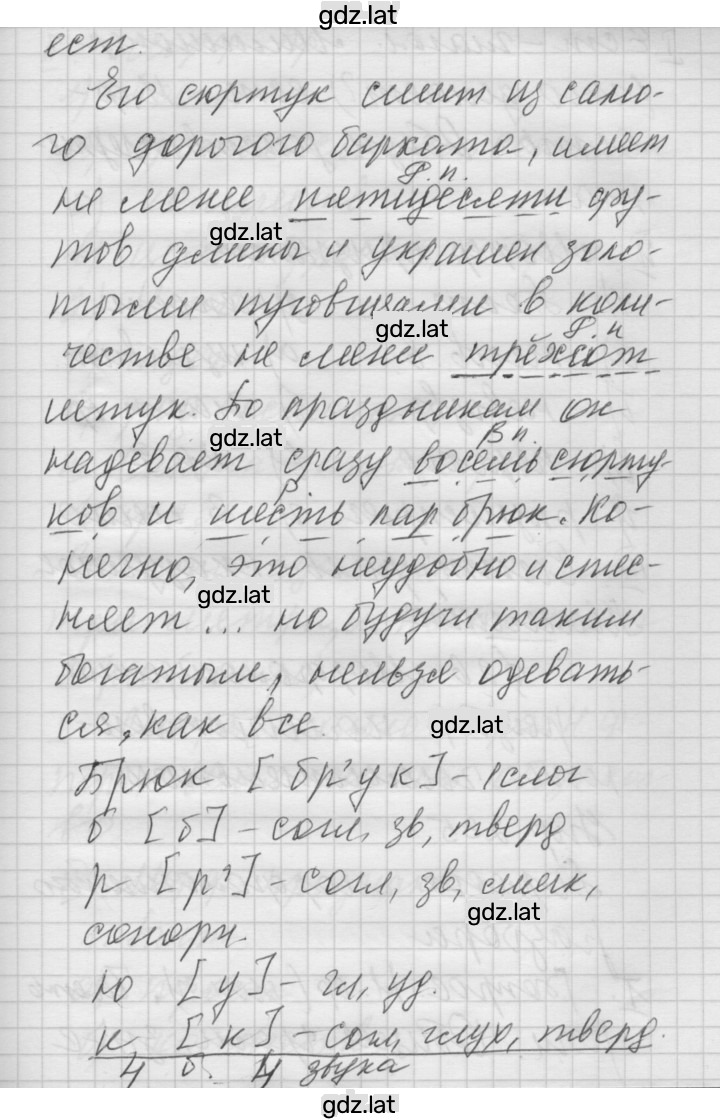 gdz.lat
ест.
Его сюртук сшит из само-
го дорогого бархата, имеет
Р. п.
не менее пятидесяти фу-
gdz.lat
тов длины и украшен золо-
тыми пуговицами в коли-
gdz.lat
Р. п
честве не менее трёхсот
штук. По праздникам он
gdz.lat
В п.
надевает сразу восемь сюрту-
ков и шесть пар брюк. Ко-
нечно, это неудобно и стес-
gdz.lat
няет... но будучи таким
богатым, нельзя одевать-
ся, как все.
gdz.lat
Брюк [бр'ук] - 1 слог
б [б] - согл, зв, тверд
р [р'] - согл, зв, мягк,
gdz.lat
сонорн.
ю [у] - гл, уд.
к [к] - согл, глух, тверд.
4 б. 4 звука
gdz.lat